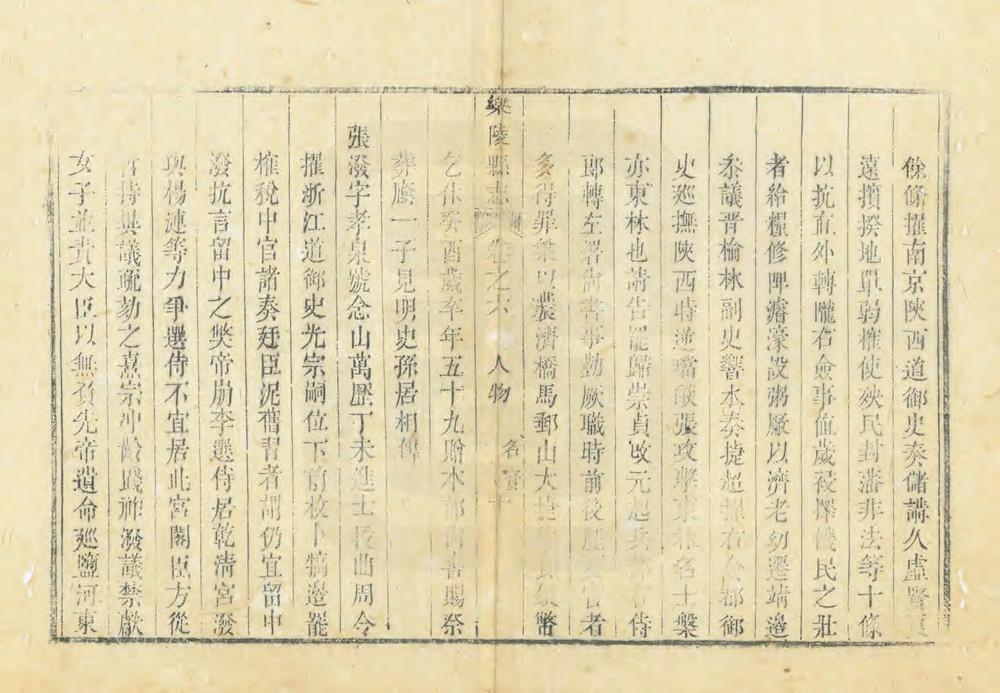 餘條擢南京陝西道御史奏儲講久虛賢
遠擯撥地單弱榷使殃民封藩非法等十條
以抗直外轉隴右僉事值歲祲擇饑民之壯
者給糧修陴濬濠設粥廠以濟老幼遷靖邊
叅議晉榆林副史響水奏捷超擢右僉都御
史廵撫陝西時逆璫張攻擊東林名士槃
亦東林也請告罷歸崇貞改元起兵部侍
郎轉左署尚書事勤厥職時前後官者
多得罪槃以濃濟橋馬郵山大捷幣
樂陵縣志 卷之六 人物 名賢
乞休癸酉歲卒年五十九贈本部尚書賜祭
葬廕一子見明史孫居相傳
張潑字孝泉號念山萬歷丁未進士長曲周令
擢浙江道御史光宗嗣位下前枚卜犒邊罷
榷稅中官諸奏廷臣泥舊習者謂仍宜留中
潑抗言留中之獘帝崩李選侍居乾清宮潑
與楊漣等力爭選侍不宜居此宮閣臣方從
持異議疏劾之熹宗冲齡踐祚潑議禁獻
女子並責大臣以無負先帝遺命廵鹽河東